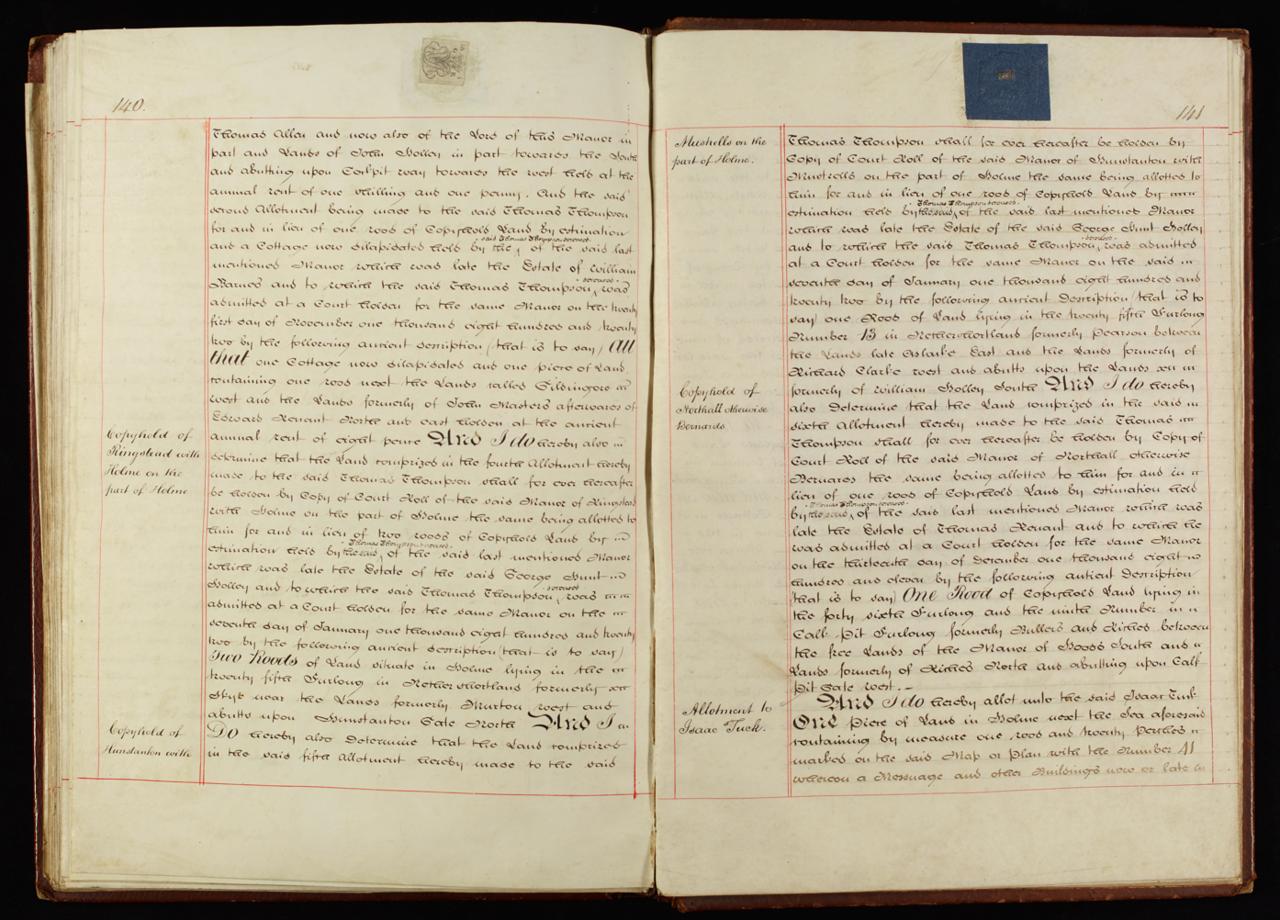 140.
Thomas Allen and now also of the Lord of this Manor in
part and Lands of John Holley in part towards the South
and abutting upon Coalpit way towards the west held at the
annual rent of one shilling and one penny. And the said
second Allotment being made to the said Thomas Thompson
for and in lieu of one rood of Copyhold Land by estimation
said Thomas Thompson deceased
and a Cottage now dilapidated held by the, of the said last
mentioned Manor which was late the Estate of William
deceased
Barnes and to which the said Thomas Thompson, was
admitted at a Court holden for the same Manor on the twenty
first day of November one thousand eight hundred and twenty
two by the following ancient description (that is to say) All
that one Cottage now dilapidated and one piece of Land
containing one rood next the Lands called Gildingore in
west and the Lands formerly of John Masters afterwards of
Edward Renant North and east holden at the ancient
Copyhold of
annual rent of eight pence And I do hereby also
Ringstead with
determine that the Land comprized in the fourth Allotment hereby
Holme on the
made to the said Thomas Thompson shall for ever hereafter
part of Holme
be holden by Copy of Court Roll of the said Manor of Ringstead
with Holme on the part of Holme the same being allotted to
him for and in lieu of two roods of Copyhold Land by
Thomas Thompson deceased
estimation held by the said, of the said last mentioned Manor
which was late the Estate of the said George Hunt
deceased
Holley and to which the said Thomas Thompson, was
admitted at a Court holden for the same Manor on the
seventh day of January one thousand eight hundred and twenty
two by the following ancient description (that is to say)
Two Roods of Land situate in Holme lying in the
twenty fifth Furlong in Nethershortland formerly
Skyb near the Lands formerly Murton west and
abutts upon Hunstanton Gate North And I
Copyhold of
Do hereby also Determine that the Land comprized
Hunstanton with
in the said fifth Allotment hereby made to the said
141
Mustrells on the
part of Holme.
Thomas Thompson shall for ever hereafter be holden by
Copy of Court Roll of the said Manor of Hunstanton with
Mustrells on the part of Holme the same being allotted to
him for and in lieu of one rood of Copyhold Land by
Thomas Thompson deceased
estimation held by the said, of the said last mentioned Manor
which was late the Estate of the said George Hunt Holley
deceased
and to which the said Thomas Thompson, was admitted
at a Court holden for the same Manor on the said
seventh day of January one thousand eight hundred and
twenty two by the following ancient Description (that is to
say) one Rood of Land lying in the twenty fifth Furlong
Number 13 in Nethershortland formerly Pearson between
the Lands late Clarke East and the Lands formerly of
Richard Clarke west and abutts upon the Lands
Copyhold of
formerly of William Holley South And I do hereby
Northall otherwise
also Determine that the Land comprized in the said
Bernards
sixth Allotment hereby made to the said Thomas
Thompson shall for ever hereafter be holden by Copy of
Court Roll of the said Manor of Northall otherwise
Bernards the same being allotted to him for and in
lieu of one rood of Copyhold Land by estimation held
Thomas Thompson deceased
by the said, of the said last mentioned Manor which was
late the Estate of Thomas Renant and to which he
was admitted at a Court holden for the same Manor
on the thirteenth day of December one thousand eight
hundred and eleven by the following antient Description
(that is to say) One Rood of Copyhold Land lying in
the forty sixth Furlong and the ninth Number in
Calk Pit Furlong formerly Bullers and Riches between
the free Lands of the Manor of Hoods South and
Lands formerly of Riches North and abutting upon Calk
Pit Gate west.
Allotment to
And I do hereby allot unto the said Isaac Tuck
Isaac Tuck.
One piece of Land in Holme next the Sea aforesaid
containing by measure one rood and twenty perches
marked on the said Map or Plan with the Number 41
whereon a Messuage and other Buildings now or late